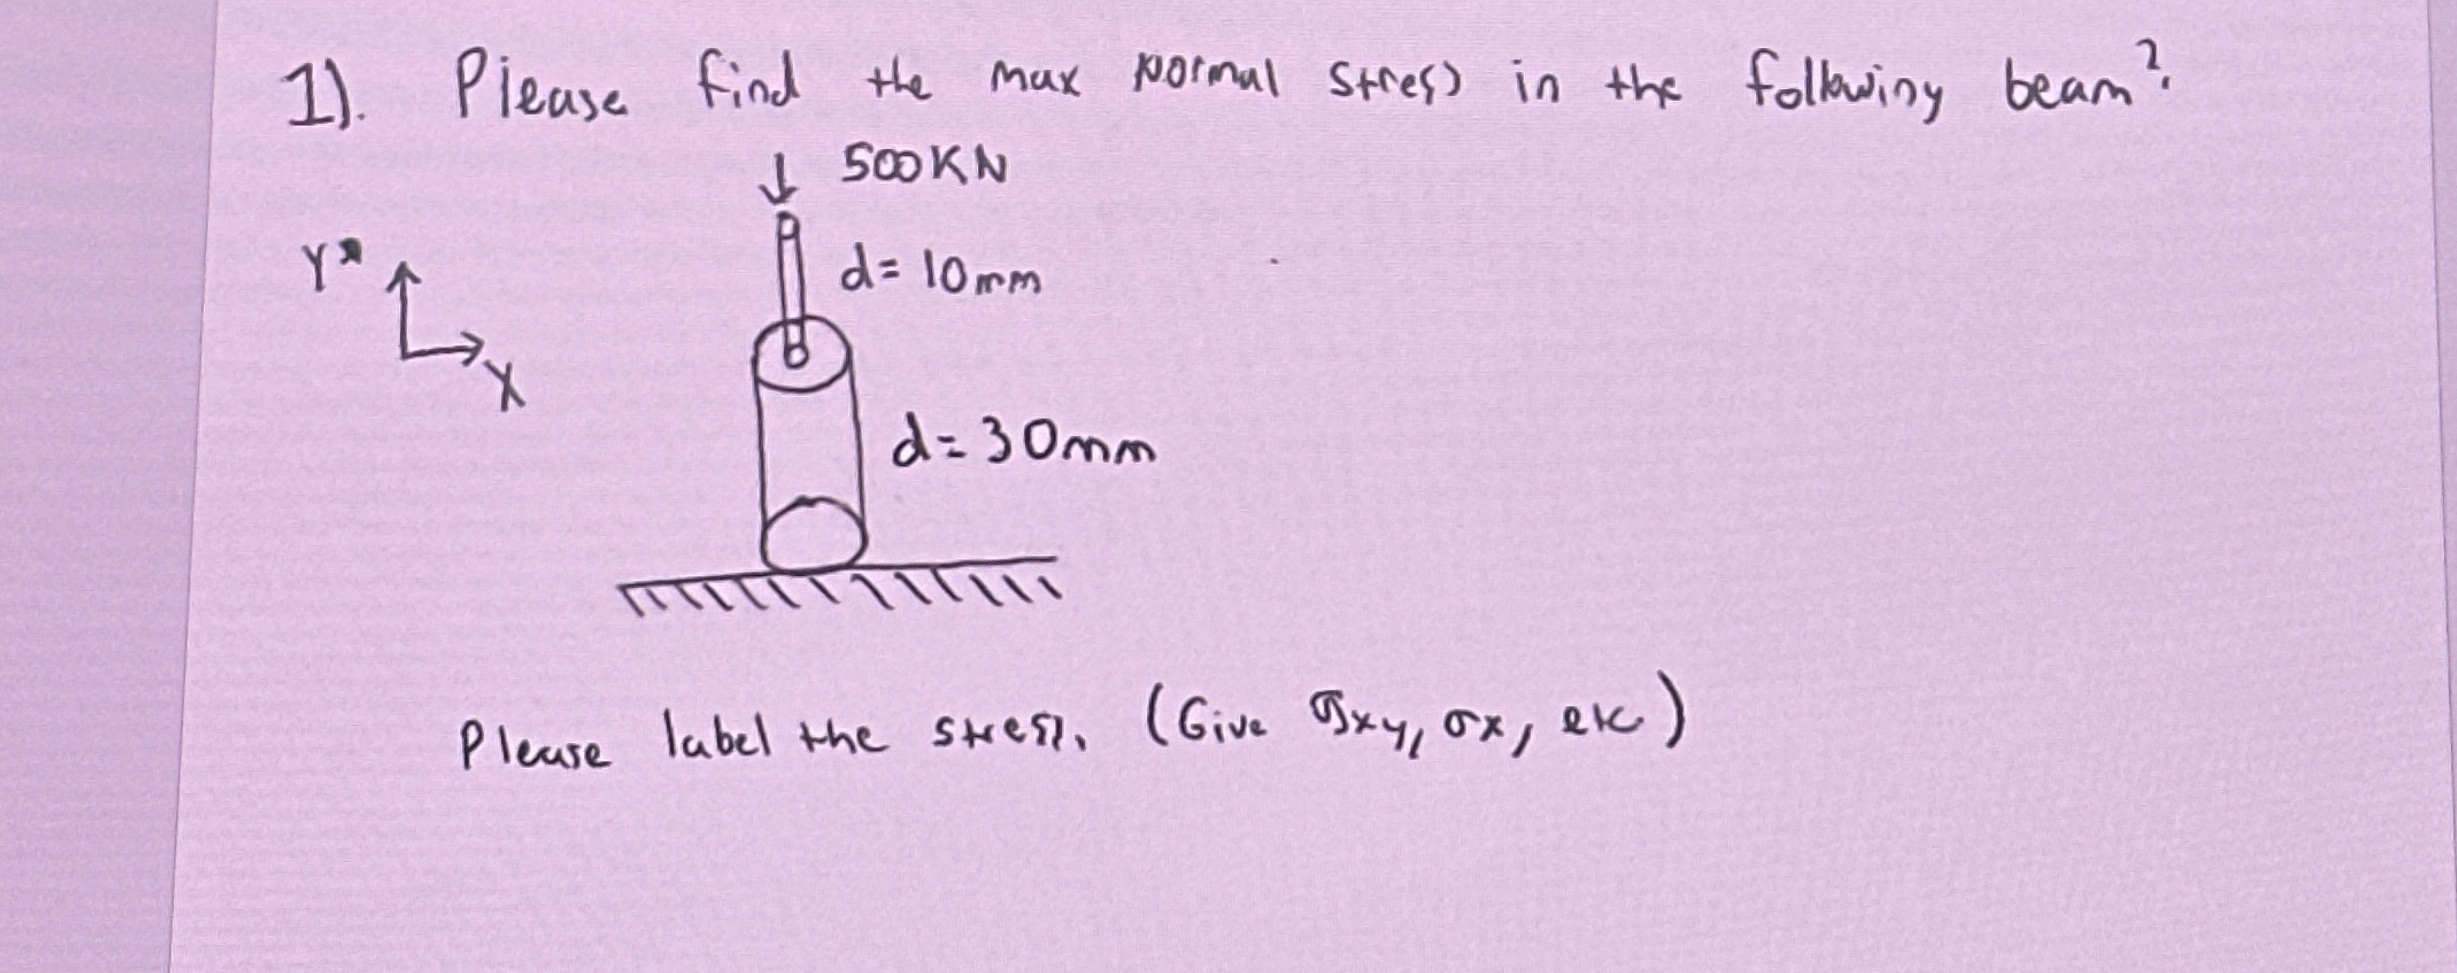 1). Please find the max Normal stress in the following beam?
↓ 500KN
Y
d= 10mm
X
d= 30mm
Please label the stress. (Give σxy, σx, etc)